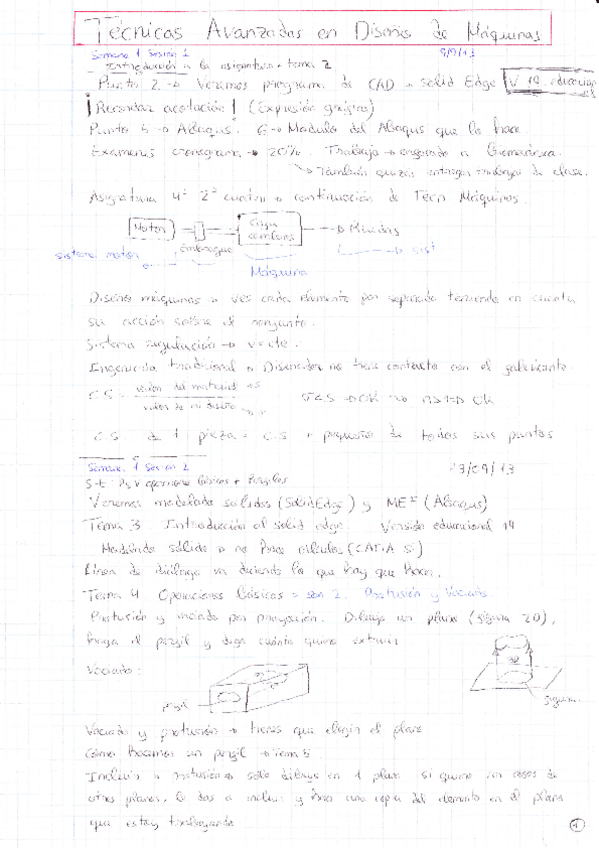 Técnicas Avanzadas en Diseño de Máquinas
Semana 1 Sesión 1 9/9/13
Introducción a la asignatura + tema 2
Punto 2 → Veremos programa de CAD → Solid Edge V 19 educacion
¡Recordar acotación! (Expresión gráfica)
Punto 5 → Abaqus. 6 → Modulo del Abaqus que lo hace.
Examenes cronograma → 20%. Trabajo → engorado a Biomecánica.
→ También quizás entregas trabajos de clase.
Asignatura 4º 2º cuatri → continuación de Tecn Máquinas.
Motor Caja cambios → Ruedas
embrague
sistema motor → sist
Máquina
Diseño máquinas → ves cada elemento por separado teniendo en cuenta
su acción sobre el conjunto.
Sistema regulación → v = cte.
Ingeniería tradicional → Diseñador no tiene contacto con el fabricante.
C.S. = valor del material
valor de mi diseño
→ OK → n>1 → OK
C.S. de 1 pieza = C.S + pequeño de todos sus puntos
Semana 1 Sesión 2 /09/13
operaciones básicas + Perfiles
Veremos modelado sólidos (Solid Edge) y MEF (Abaqus)
Tema 3 Introducción al solid edge. Versión educacional 19
Modelado sólido → no hace cálculos (CATIA Sí)
Línea de diálogo va diciendo lo que hay que hacer.
Tema 4 Operaciones Básicas → son 2. Protusión y Vaciado.
Protusión y vaciado por proyección. Dibujo un plano (figura 20),
hago el perfil y digo cuánto quiero extruir
Vaciado:
perfil
figura.
Vaciado y protusión → tienes que elegir el plano
Cómo hacemos un perfil → Tema 5
Incluir → protusión → solo dibujo en 1 plano si quiero en cosas de
otros planos, le das a incluir y hace una copia del elemento en el plano
que estoy trabajando
1